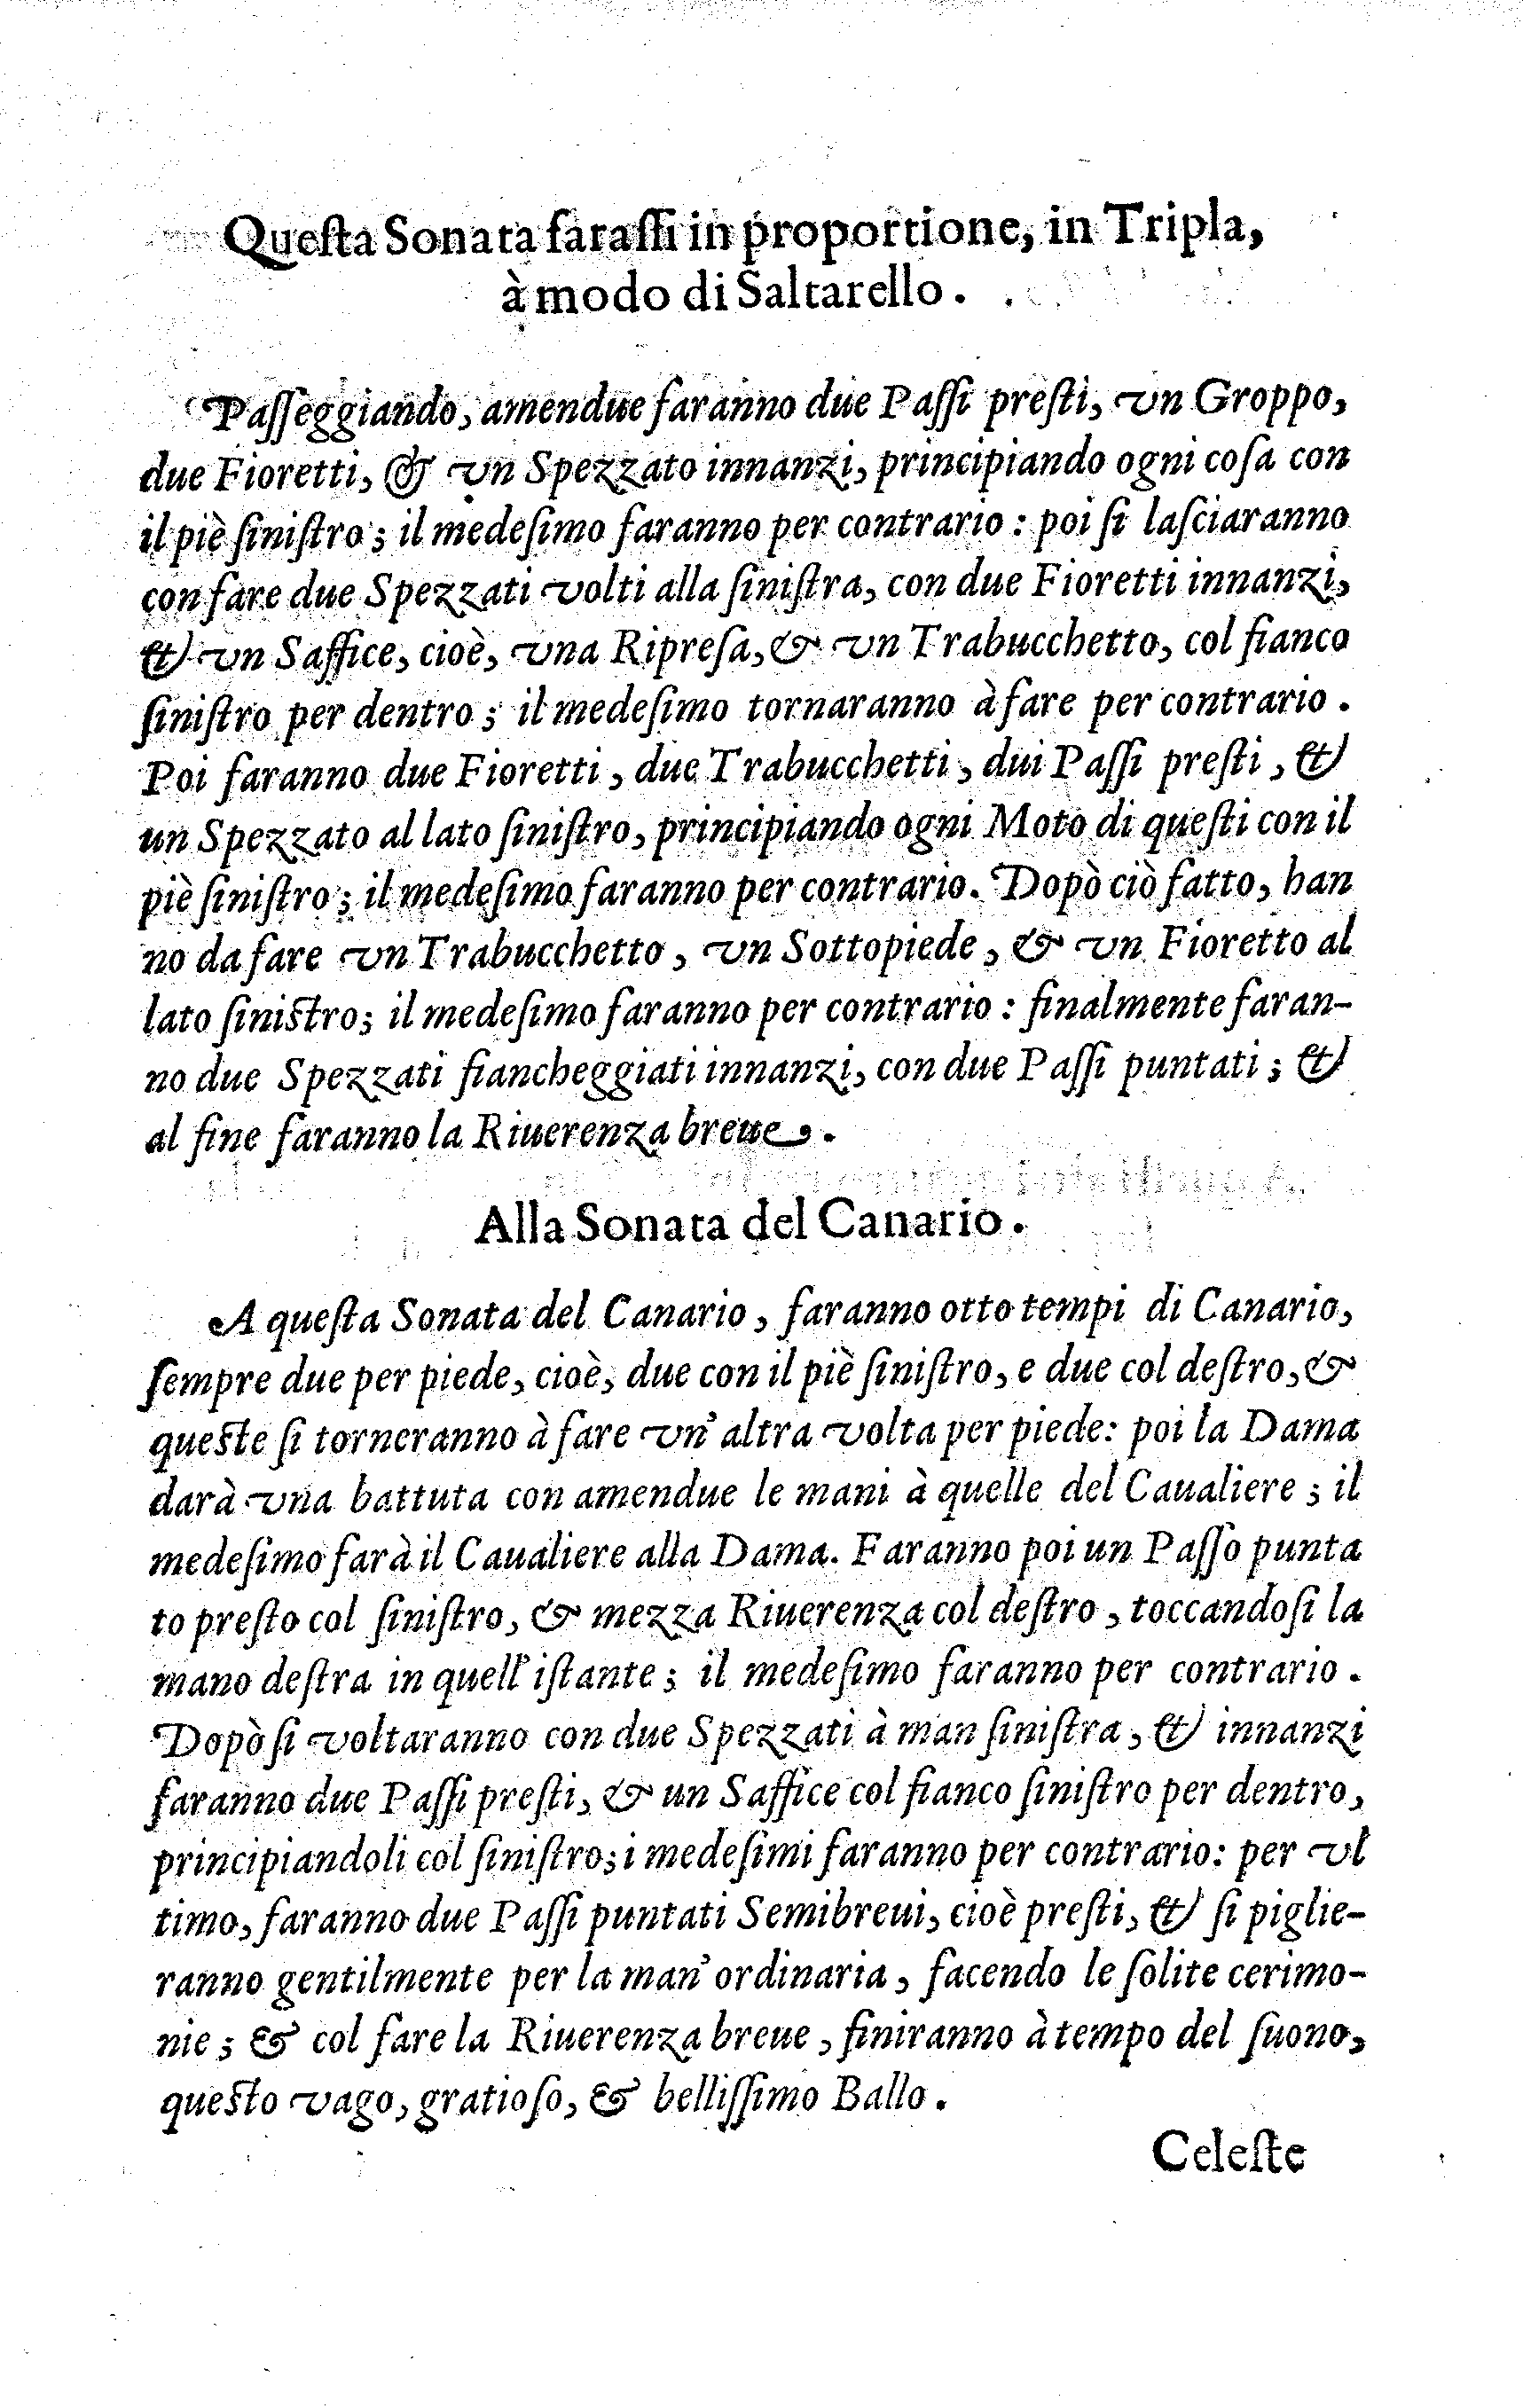 Queſta Sonata faraſſi in proportione, in Tripla,
à modo di Saltarello.
Paſſeggiando, amendue faranno due Paſſi preſti, vn Groppo,
due Fioretti, & vn Spezzato innanzi, principiando ogni coſa con
il piè ſiniſtro; il medeſimo faranno per contrario: poi ſi laſciaranno
con fare due Spezzati volti alla ſiniſtra, con due Fioretti innanzi,
& vn Saffice, cioè, vna Ripreſa, & vn Trabucchetto, col fianco
ſiniſtro per dentro; il medeſimo tornaranno à fare per contrario.
Poi faranno due Fioretti, due Trabucchetti, dui Paſſi preſti, &
un Spezzato al lato ſiniſtro, principiando ogni Moto di queſti con il
piè ſiniſtro; il medeſimo faranno per contrario. Dopò ciò fatto, han
no da fare vn Trabucchetto, vn Sottopiede, & vn Fioretto al
lato ſiniſtro; il medeſimo faranno per contrario: finalmente faran-
no due Spezzati fiancheggiati innanzi, con due Paſſi puntati; &
al fine faranno la Riuerenza breue.
Alla Sonata del Canario.
A queſta Sonata del Canario, faranno otto tempi di Canario,
ſempre due per piede, cioè, due con il piè ſiniſtro, e due col deſtro, &
queſte ſi torneranno à fare vn' altra volta per piede: poi la Dama
darà vna battuta con amendue le mani à quelle del Caualiere; il
medeſimo farà il Caualiere alla Dama. Faranno poi un Paſſo punta
to preſto col ſiniſtro, & mezza Riuerenza col deſtro, toccandoſi la
mano deſtra in quell' iſtante; il medeſimo faranno per contrario.
Dopò ſi voltaranno con due Spezzati à man ſiniſtra, & innanzi
faranno due Paſſi preſti, & un Saffice col fianco ſiniſtro per dentro,
principiandoli col ſiniſtro; i medeſimi faranno per contrario: per vl
timo, faranno due Paſſi puntati Semibreui, cioè preſti, & ſi piglie-
ranno gentilmente per la man' ordinaria, facendo le ſolite cerimo-
nie; & col fare la Riuerenza breue, finiranno à tempo del ſuono,
queſto vago, gratioſo, & belliſſimo Ballo.
Celeſte